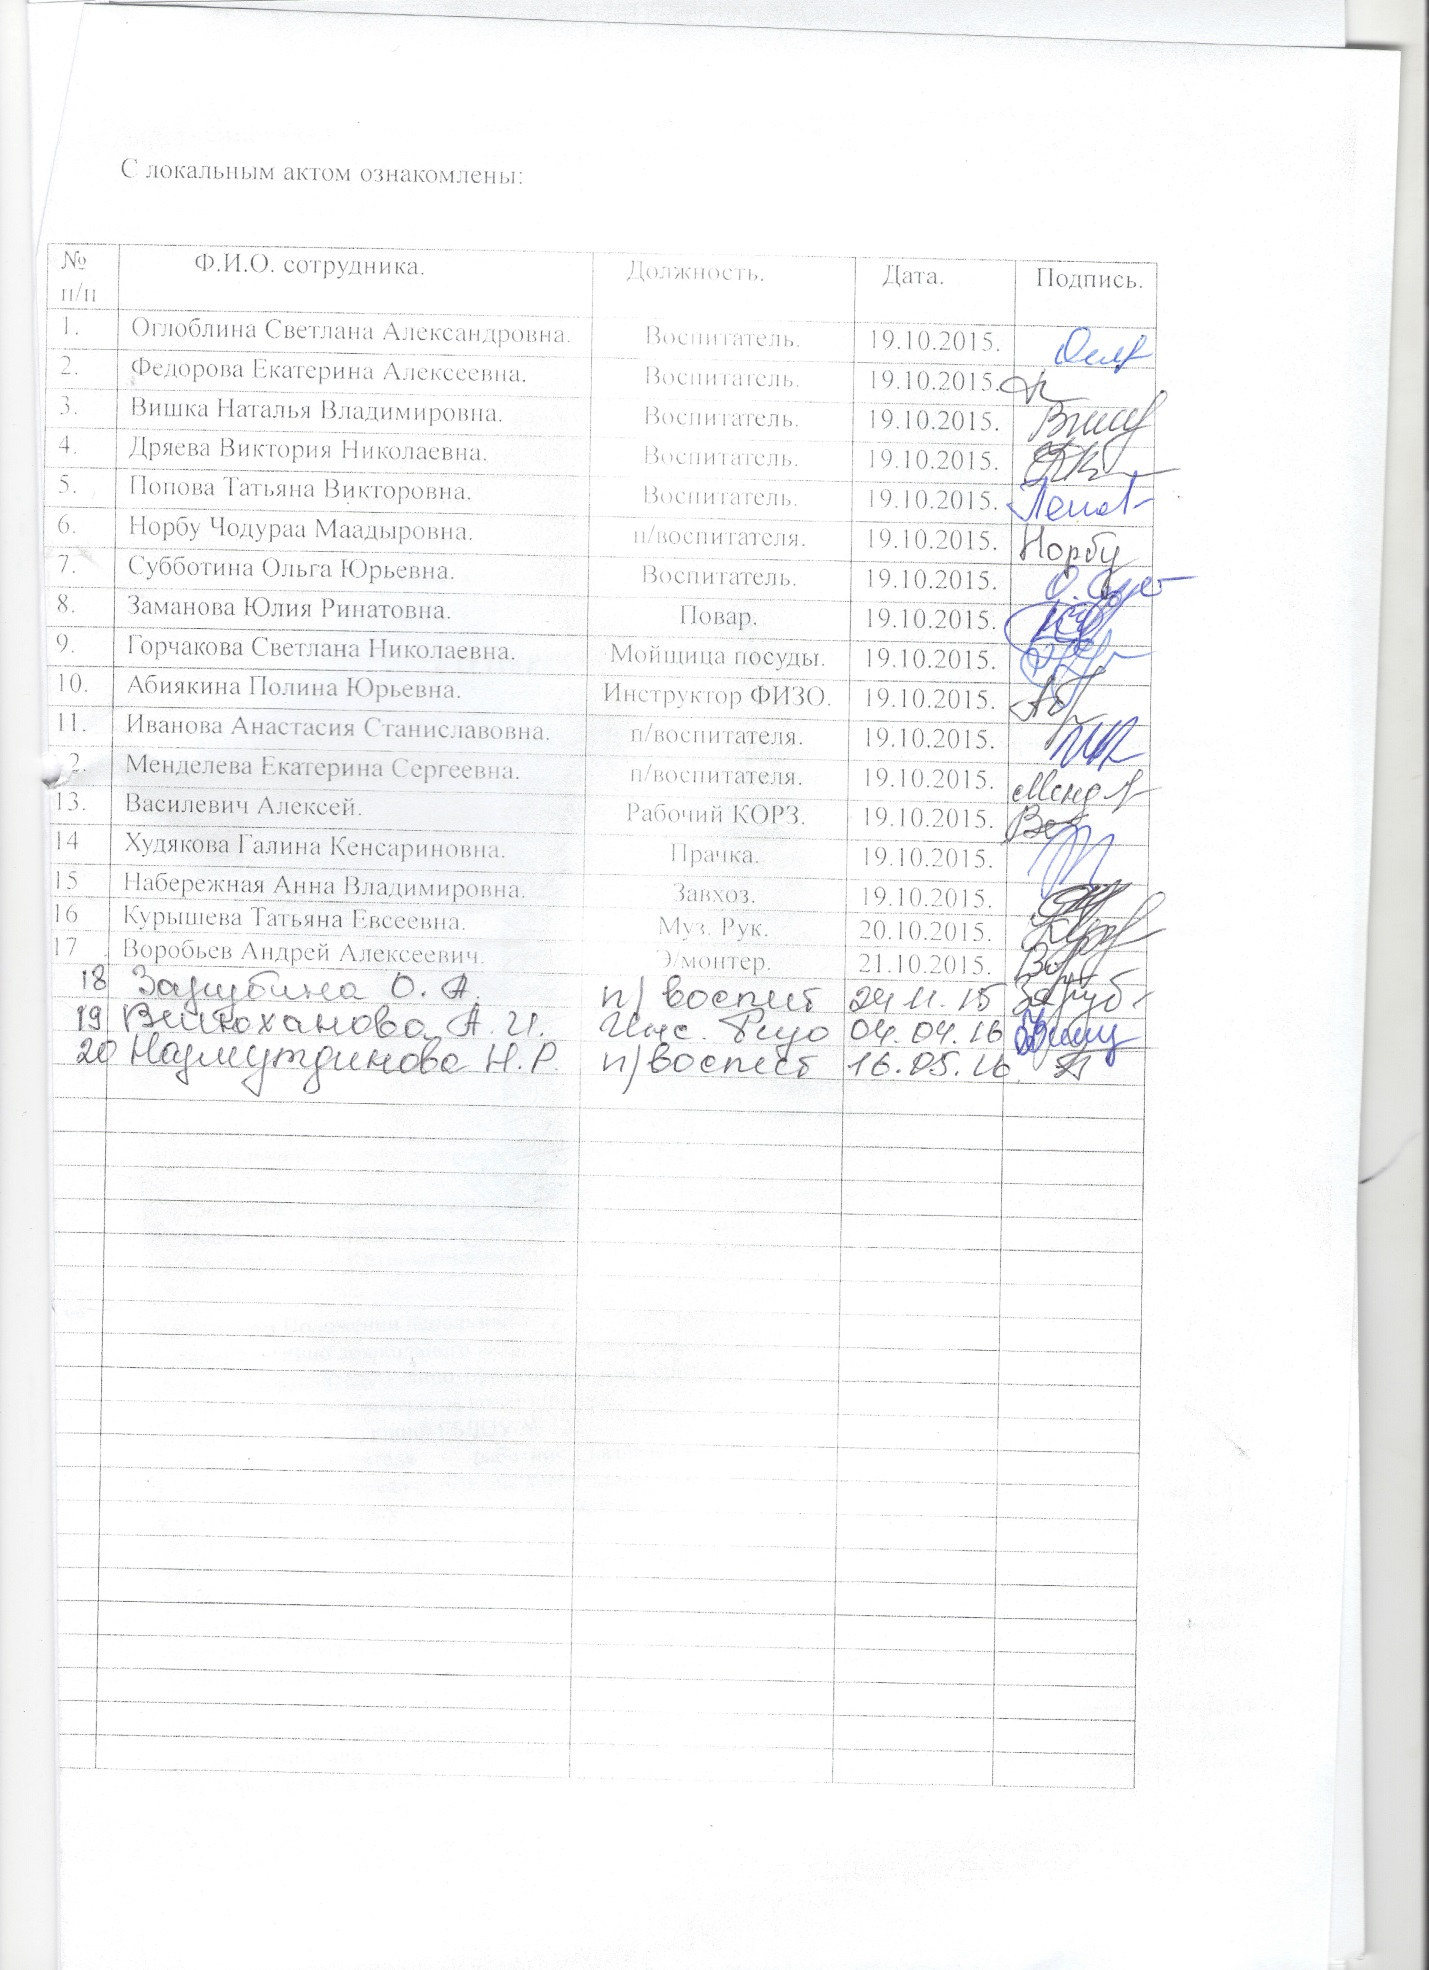 С локальным актом ознакомлены:
№ п/п Ф.И.О. сотрудника. Должность. Дата. Подпись.
1. Оглоблина Светлана Александровна. Воспитатель. 19.10.2015.
2. Федорова Екатерина Алексеевна. Воспитатель. 19.10.2015.
3. Вишка Наталья Владимировна. Воспитатель. 19.10.2015.
4. Дряева Виктория Николаевна. Воспитатель. 19.10.2015.
5. Попова Татьяна Викторовна. Воспитатель. 19.10.2015.
6. Норбу Чодураа Маадыровна. п/воспитателя. 19.10.2015. Норбу
7. Субботина Ольга Юрьевна. Воспитатель. 19.10.2015.
8. Заманова Юлия Ринатовна. Повар. 19.10.2015.
9. Горчакова Светлана Николаевна. Мойщица посуды. 19.10.2015.
10. Абиякина Полина Юрьевна. Инструктор ФИЗО. 19.10.2015.
11. Иванова Анастасия Станиславовна. п/воспитателя. 19.10.2015.
2. Менделева Екатерина Сергеевна. п/воспитателя. 19.10.2015.
13. Василевич Алексей. Рабочий КОРЗ. 19.10.2015.
14 Худякова Галина Кенсариновна. Прачка. 19.10.2015.
15 Набережная Анна Владимировна. Завхоз. 19.10.2015.
16 Курышева Татьяна Евсеевна. Муз. Рук. 20.10.2015.
17 Воробьев Андрей Алексеевич. Э/монтер. 21.10.2015.
18 Зарубина О. А. п/воспит 24.11.15 Заруб
19 А. И. Инс. Физо 04.04.16
20 Наджмутдинова Н.Р. п/воспит 16.05.16